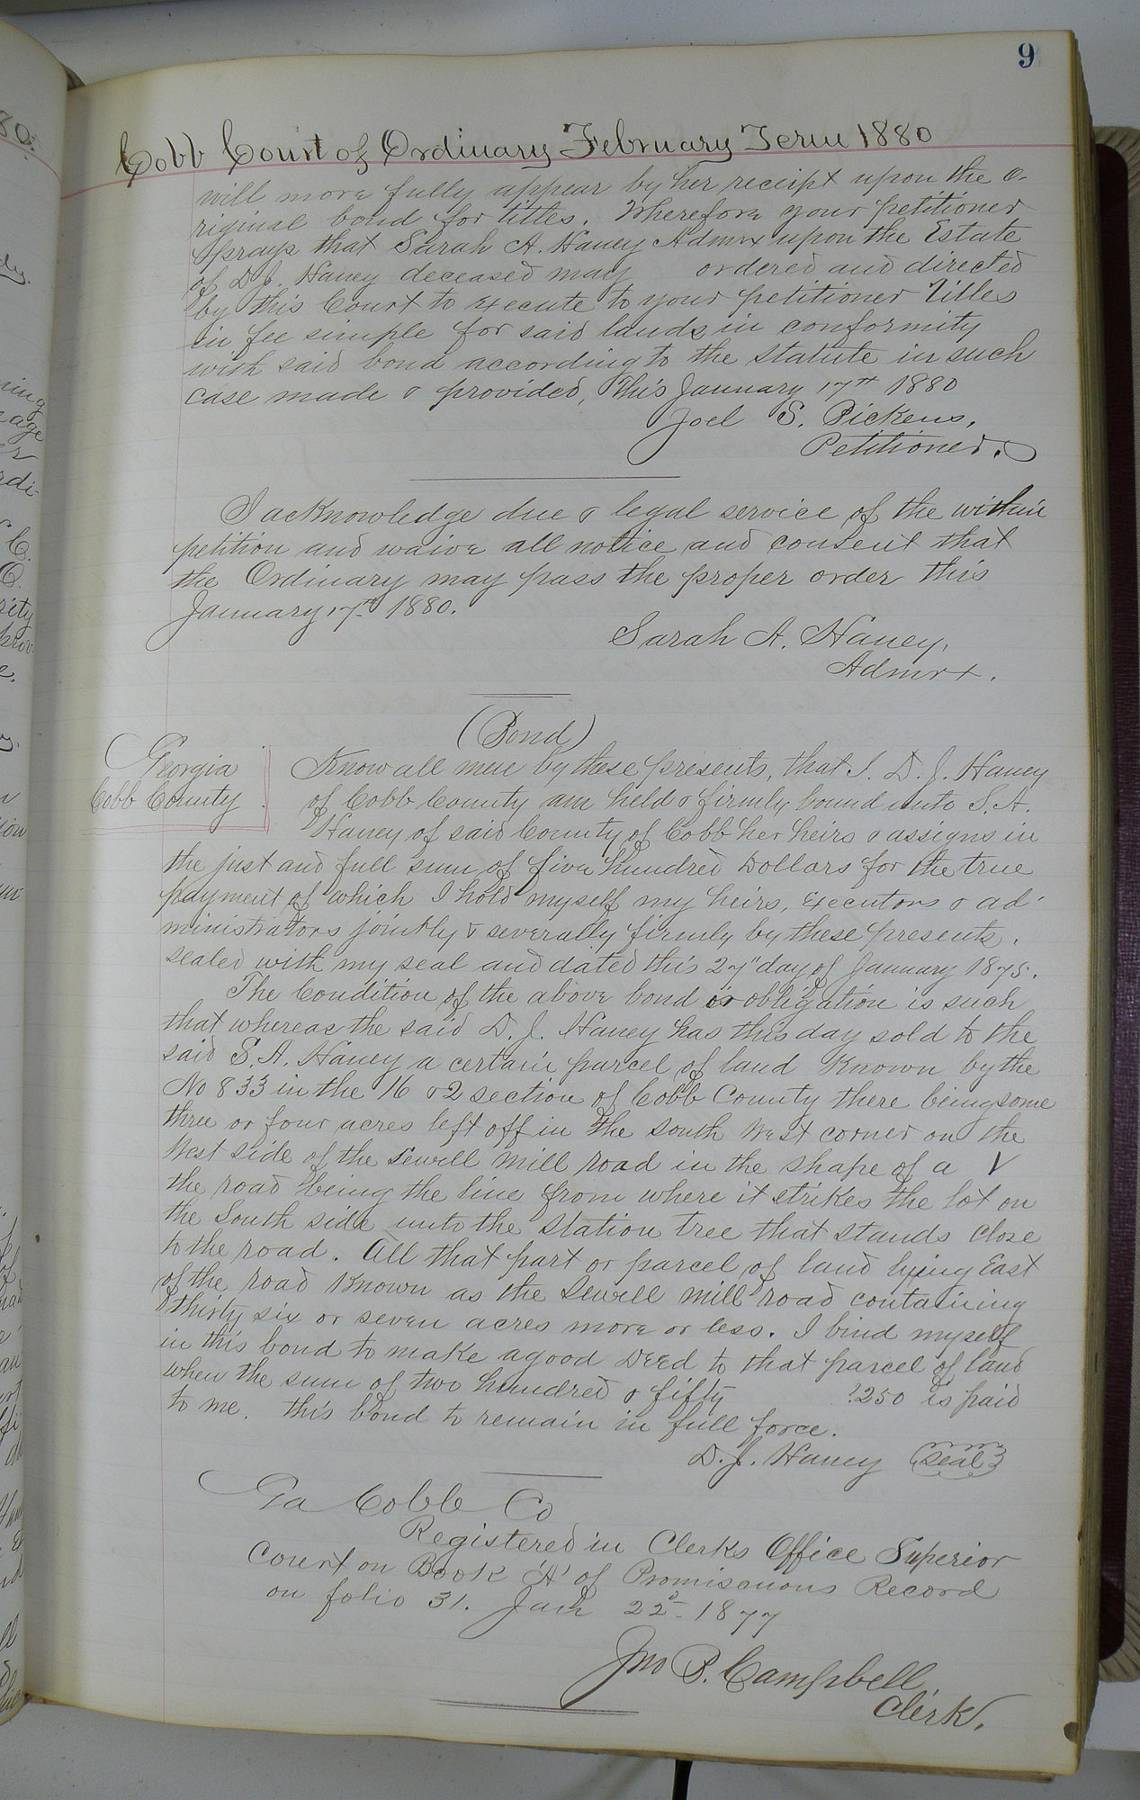 9
Cobb Court of Ordinary February Term 1880
will more fully appear by her receipt upon the o-
riginal bond for titles. Wherefore your petitioner
prays that Sarah A. Haney Admrx upon the Estate
of D. J. Haney deceased may ordered and directed
by this Court to execute to your petitioner Titles
in fee simple for said lands in conformity
with said bond according to the statute in such
case made & provided, This January 17th 1880
Joel S. Pickens,
Petitioner.
I acknowledge due & legal service of the within
petition and waive all notice and consent that
the Ordinary may pass the proper order this
January 17th 1880.
Sarah A. Haney,
Admrx.
(Bond)
Georgia
Cobb County
Know all men by these presents, that I. D. J. Haney
of Cobb County am held & firmly bound unto S. A.
Haney of said County of Cobb her heirs & assigns in
the just and full sum of five hundred Dollars for the true
payment of which I hold myself my heirs, Executors & ad-
ministrators jointly & severally firmly by these presents.
sealed with my seal and dated this 27" day of January 1875.
The Condition of the above bond or obligation is such
that whereas the said D. J. Haney has this day sold to the
said S. A. Haney a certain parcel of land Known by the
No 833 in the 16 & 2 section of Cobb County there being some
three or four acres left off in the South West corner on the
West side of the Sewell Mill road in the shape of a V
the road being the line from where it strikes the lot on
the South side unto the Station tree that stands close
to the road. All that part or parcel of land lying East
of the road Known as the Sewell mill road containing
thirty six or seven acres more or less. I bind myself
in this bond to make a good Deed to that parcel of land
when the sum of two hundred & fifty $250 is paid
to me. this bond to remain in full force.
D. J. Haney (Seal)
Ga Cobb Co
Registered in Clerks Office Superior
Court on Book 'A' of Promiscuous Record
on folio 31. Jan 22d 1877
Jno P. Campbell
Clerk.